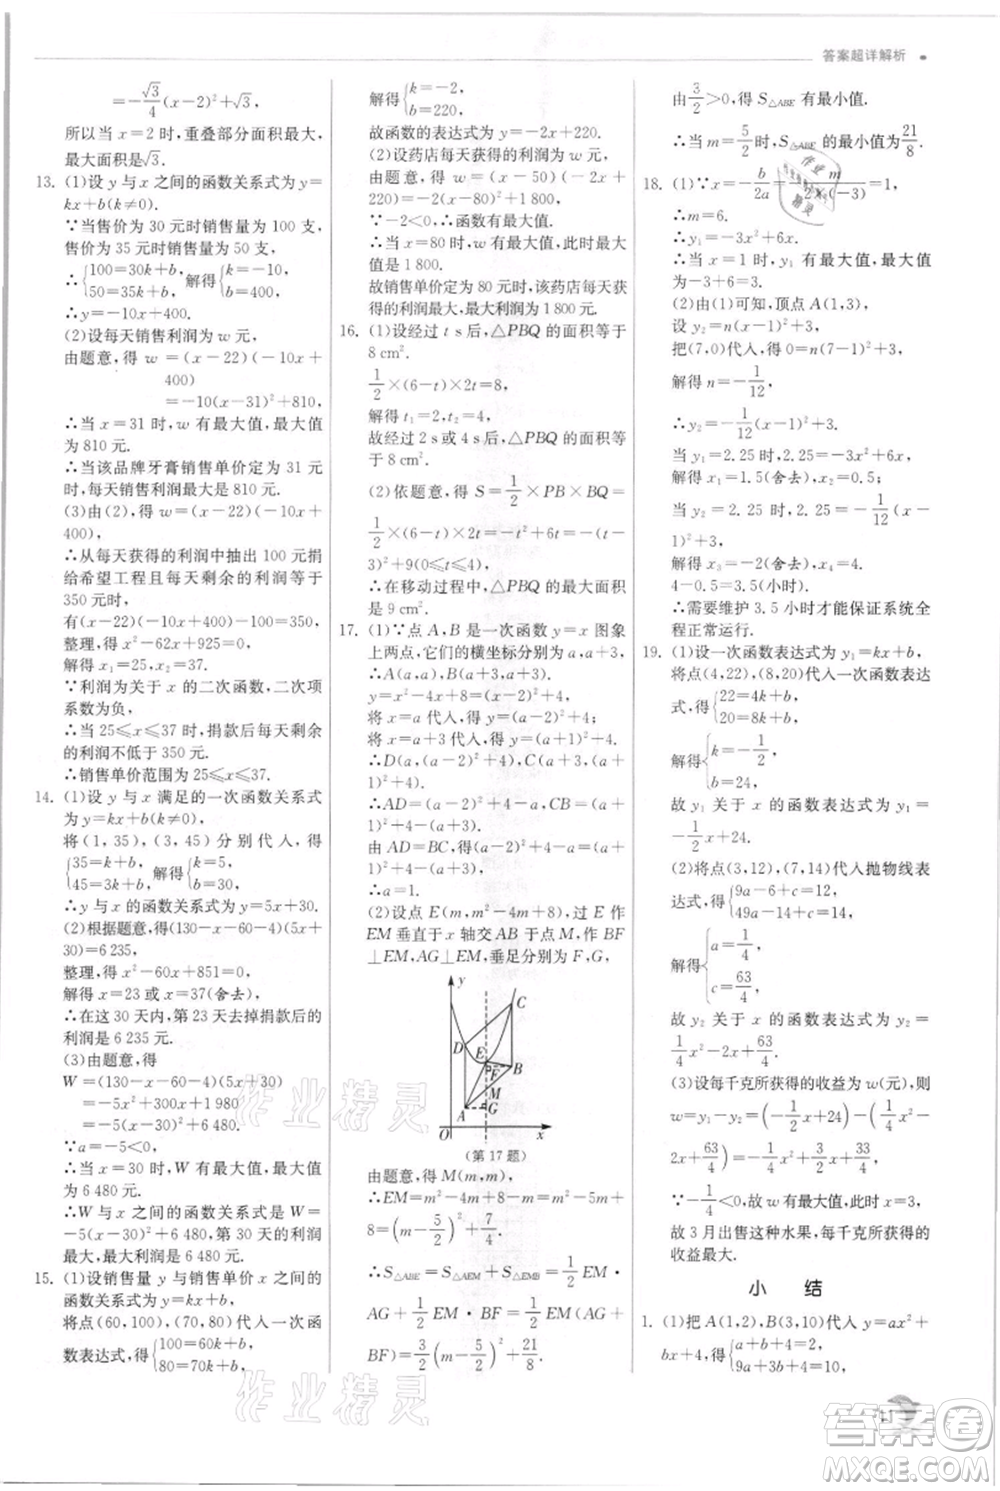 答案超详解析
=-√3/4(x-2)²+√3,
所以当 x=2 时,重叠部分面积最大,
最大面积是√3.
13. (1)设 y 与 x 之间的函数关系式为 y=
kx+b(k≠0).
∵当售价为 30 元时销售量为 100 支,
售价为 35 元时销售量为 50 支,
∴{100=30k+b, 50=35k+b, 解得{k=-10, b=400,
∴y=-10x+400.
(2)设每天销售利润为 w 元.
由题意,得 w=(x-22)(-10x+
400)
=-10(x-31)²+810,
∴当 x=31 时,w 有最大值,最大值
为 810 元.
∴当该品牌牙膏销售单价定为 31 元
时,每天销售利润最大是 810 元.
(3)由(2),得 w=(x-22)(-10x+
400),
∴从每天获得的利润中抽出 100 元捐
给希望工程且每天剩余的利润等于
350 元时,
有(x-22)(-10x+400)-100=350.
整理,得 x²-62x+925=0.
解得 x₁=25,x₂=37.
∵利润为关于 x 的二次函数,二次项
系数为负,
∴当 25≤x≤37 时,捐款后每天剩余
的利润不低于 350 元.
∴销售单价范围为 25≤x≤37.
14. (1)设 y 与 x 满足的一次函数关系式
为 y=kx+b(k≠0),
将(1,35),(3,45)分别代人,得
{35=k+b, 45=3k+b, 解得{k=5, b=30,
∴y 与 x 的函数关系式为 y=5x+30.
(2)根据题意,得(130-x-60-4)(5x+
30)=6 235,
整理,得 x²-60x+851=0.
解得 x=23 或 x=37(舍去),
∴在这 30 天内,第 23 天去掉捐款后的
利润是 6 235 元.
(3)由题意,得
W=(130-x-60-4)(5x+30)
=-5x²+300x+1 980
=-5(x-30)²+6 480.
∵a=-5<0,
∴当 x=30 时,W 有最大值,最大值
为 6 480 元.
∴W 与 x 之间的函数关系式是 W=
-5(x-30)²+6 480,第 30 天的利润
最大,最大利润为 6 480 元.
15. (1)设销售量 y 与销售单价 x 之间的
函数关系式为 y=kx+b(k≠0),
将点(60,100),(70,80)代入一次函
数表达式,得{100=60k+b, 80=70k+b,
解得{k=-2, b=220,
故函数的表达式为 y=-2x+220.
(2)设药店每天获得的利润为 w 元,
由题意,得 w=(x-50)(-2x+
220)=-2(x-80)²+1 800,
∵-2<0,∴函数有最大值.
∴当 x=80 时,w 有最大值,此时最大
值是 1 800.
故销售单价定为 80 元时,该药店每天
获得的利润最大,最大利润为 1 800 元.
16. (1)设经过 t s后,△PBQ 的面积等于
8 cm².
1/2×(6-t)×2t=8,
解得 t₁=2,t₂=4,
故经过 2 s或 4 s后,△PBQ 的面积等
于 8 cm².
(2)依题意,得 S=1/2×PB×BQ=
1/2×(6-t)×2t=-t²+6t=-(t-
3)²+9(0≤t≤6).
∴在移动过程中,△PBQ 的最大面积
是 9 cm².
17. (1)∵点 A,B 是一次函数 y=x 图象
上两点,它们的横坐标分别为 a,a+3,
∴A(a,a),B(a+3,a+3).
∵y=x²-4x+8=(x-2)²+4,
将 x=a 代入,得 y=(a-2)²+4;
将 x=a+3 代入,得 y=(a+1)²+4.
∴D(a,(a-2)²+4),C(a+3,
(a+1)²+4).
∴AD=(a-2)²+4-a,CB=(a+
1)²+4-(a+3).
由 AD=BC,得(a-2)²+4-a=(a+
1)²+4-(a+3).
∴a=1.
(2)设点 E(m,m²-4m+8),过 E 作
EM 垂直于 x 轴交 AB 于点 M,作 BF
⊥EM,AG⊥EM,垂足分别为 F,G,
y
C
D
E
F
B
M
A
G
O
x
(第 17 题)
由题意,得 M(m,m),
∴EM=m²-4m+8-m=m²-5m+
8=(m-5/2)²+7/4,
∴S△ABE=S△AEM+S△EMB=1/2EM·
AG+1/2EM·BF=1/2EM(AG+
BF)=3/2(m-5/2)²+21/8.
由3/2>0,得 S△ABE 有最小值.
∴当 m=5/2时,S△ABE 的最小值为21/8.
18. (1)∵x=-b/2a=-m/2×(-3)=1,
∴m=6.
∴y₁=-3x²+6x.
∴当 x=1 时,y₁ 有最大值,最大值
为-3+6=3.
(2)由(1)可知,顶点 A(1,3),
设 y₂=n(x-1)²+3.
把(7,0)代人,得 0=n(7-1)²+3.
解得 n=-1/12,
∴y₂=-1/12(x-1)²+3.
当 y₁=2.25 时,2.25=-3x²+6x.
解得 x₁=1.5(舍去),x₂=0.5.
当 y₂=2.25 时,2.25=-1/12(x-
1)²+3,
解得 x₃=-2(舍去),x₄=4.
4-0.5=3.5(小时).
∴需要维护 3.5 小时才能保证系统全
程正常运行.
19. (1)设一次函数表达式为 y₁=kx+b,
将点(4,22),(8,20)代入一次函数表达
式,得{22=4k+b, 20=8k+b,
解得{k=-1/2, b=24,
故 y₁ 关于 x 的函数表达式为 y₁=
-1/2x+24.
(2)将点(3,12),(7,14)代入抛物线表
达式,得{9a-6+c=12, 49a-14+c=14,
解得{a=1/4, c=63/4,
故 y₂ 关于 x 的函数表达式为 y₂=
1/4x²-2x+63/4.
(3)设每千克所获得的收益为 w(元),则
w=y₁-y₂=(-1/2x+24)-(1/4x²-
2x+63/4)=-1/4x²+3/2x+33/4,
∵-1/4<0,故 w 有最大值,此时 x=3,
故 3 月出售这种水果,每千克所获得的
收益最大.
小 结
1. (1)把 A(1,2),B(3,10)代入 y=ax²+
bx+4,得{a+b+4=2, 9a+3b+4=10,
作业精灵
作业精灵
答案卷
MXQE.COM